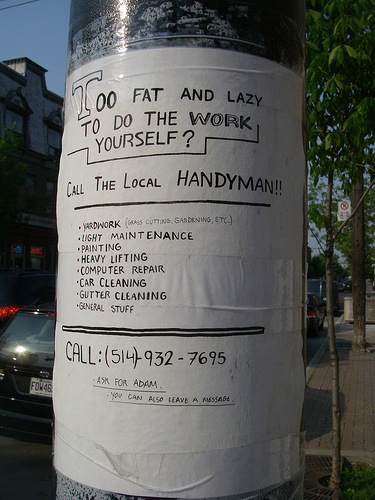 TOO FAT AND LAZY
TO DO THE WORK
YOURSELF?
CALL THE LOCAL HANDYMAN!!
• YARDWORK (GRASS CUTTING, GARDENING, ETC..)
• LIGHT MAINTENANCE
• PAINTING
• HEAVY LIFTING
• COMPUTER REPAIR
• CAR CLEANING
• GUTTER CLEANING
• GENERAL STUFF
CALL: (514)-932-7695
- ASK FOR ADAM.
- YOU CAN ALSO LEAVE A MESSAGE.